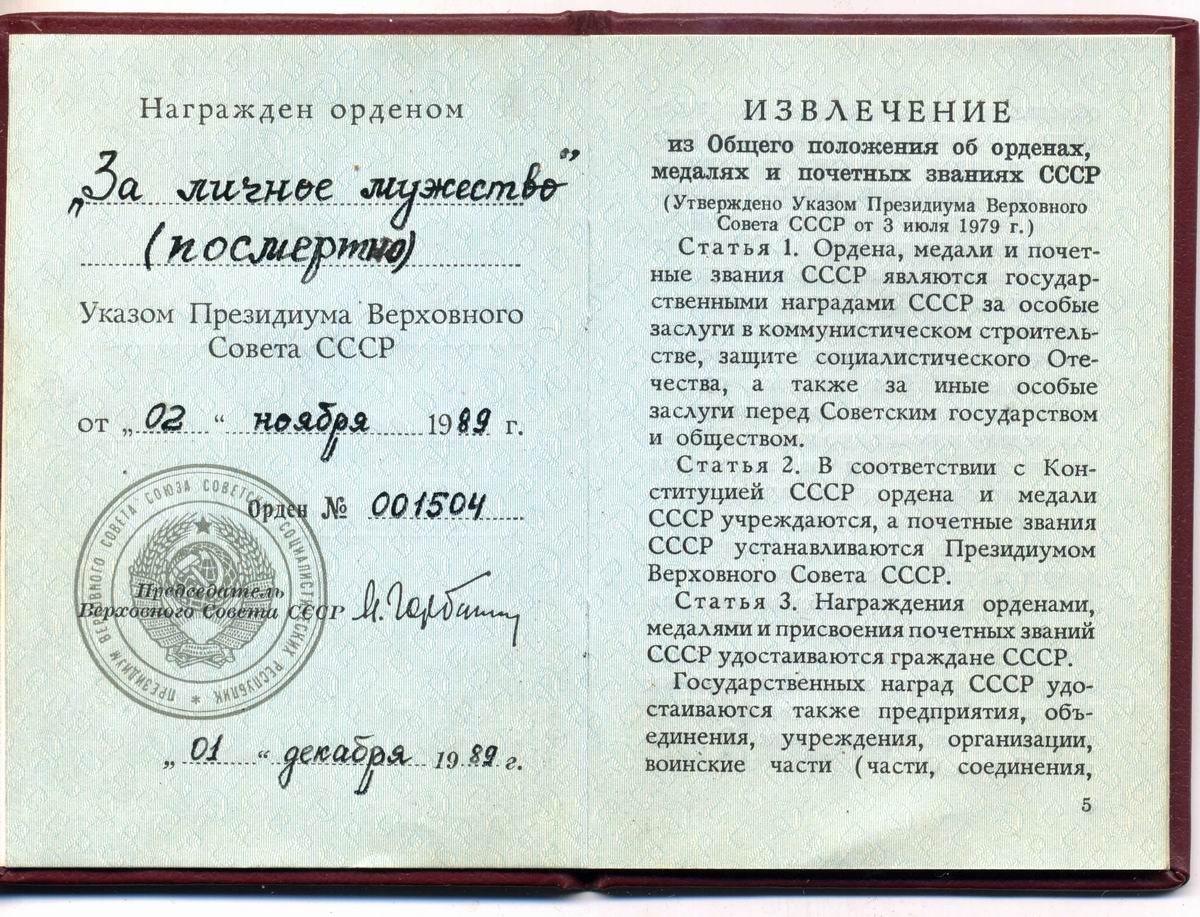 Награжден орденом
„За личное мужество”
(посмертно)
Указом Президиума Верховного
Совета СССР
от „ 02 “ ноября 1989 г.
Орден № 001504
Председатель
Верховного Совета СССР М. Горбачев
ПРЕЗИДИУМ ВЕРХОВНОГО СОВЕТА СОЮЗА СОВЕТСКИХ СОЦИАЛИСТИЧЕСКИХ РЕСПУБЛИК *
„ 01 “ декабря 1989 г.
ИЗВЛЕЧЕНИЕ
из Общего положения об орденах,
медалях и почетных званиях СССР
(Утверждено Указом Президиума Верховного
Совета СССР от 3 июля 1979 г.)
Статья 1. Ордена, медали и почет-
ные звания СССР являются государ-
ственными наградами СССР за особые
заслуги в коммунистическом строитель-
стве, защите социалистического Оте-
чества, а также за иные особые
заслуги перед Советским государством
и обществом.
Статья 2. В соответствии с Кон-
ституцией СССР ордена и медали
СССР учреждаются, а почетные звания
СССР устанавливаются Президиумом
Верховного Совета СССР.
Статья 3. Награждения орденами,
медалями и присвоения почетных званий
СССР удостаиваются граждане СССР.
Государственных наград СССР удо-
стаиваются также предприятия, объ-
единения, учреждения, организации,
воинские части (части, соединения,
5